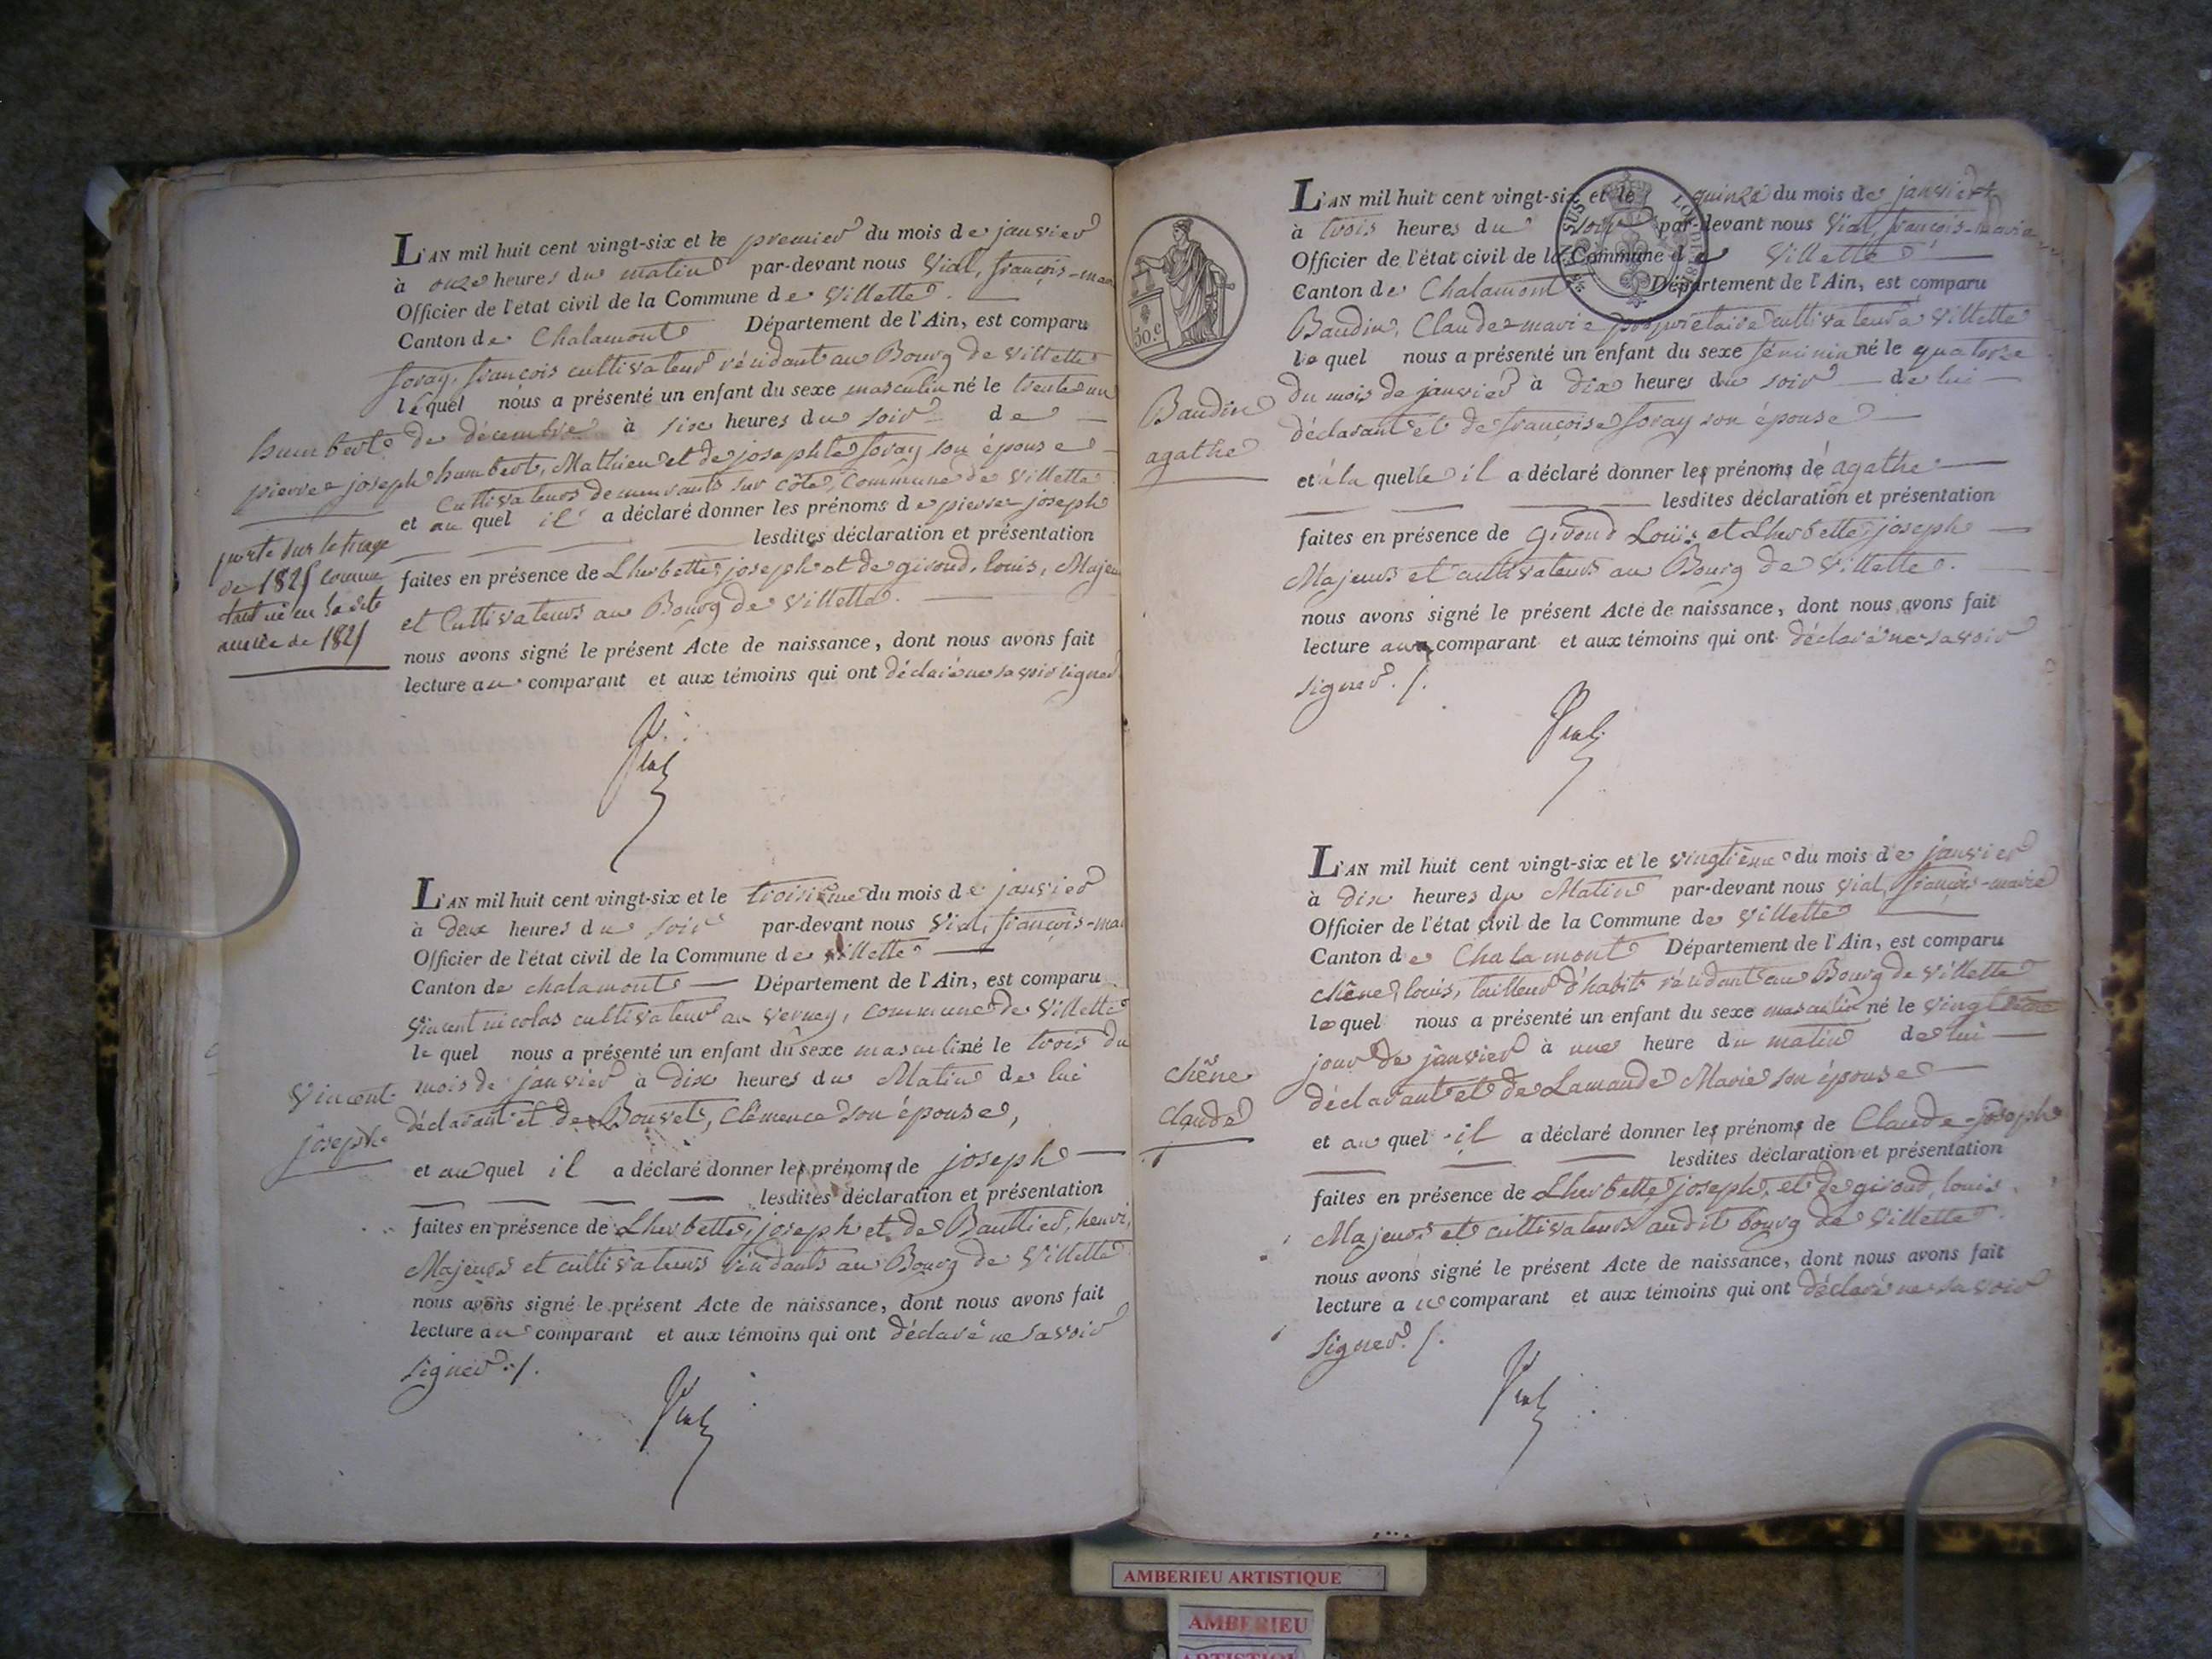 L'AN mil huit cent vingt-six et le premier du mois de janvier
à onze heures du matin par-devant nous Vial, françois-mar
Officier de l'état civil de la Commune de Villette.
Canton de Chalamont Département de l'Ain, est comparu
foray, françois cultivateur résidant au Bourg de Villette
lequel nous a présenté un enfant du sexe masculin né le trente un
de décembre à six heures du soir de
humbert, Mathieu et de josephte foray son épouse
Cultivateurs demeurants sur côte, Commune de Villette
et au quel il a déclaré donner les prénoms de pierre joseph
lesdites déclaration et présentation
faites en présence de Lherbette, joseph et de giroud, louis, Majeu
et Cultivateurs au Bourg de Villette.
nous avons signé le présent Acte de naissance, dont nous avons fait
lecture au comparant et aux témoins qui ont déclaré ne savoir signer
Vial
humbert
pierre joseph
porté sur le tirage
de 1825 comme
étant né en la dite
année de 1825
L'AN mil huit cent vingt-six et le troisième du mois de janvier
à deux heures du soir par-devant nous Vial, françois-mar
Officier de l'état civil de la Commune de Villette
Canton de chalamont Département de l'Ain, est comparu
Vincent nicolas cultivateur au Vernay, commune de Villette
lequel nous a présenté un enfant du sexe masculin né le trois du
mois de janvier à dix heures du Matin de lui
déclarant et de Bouvet, Clémence son épouse,
et au quel il a déclaré donner les prénoms de joseph
lesdites déclaration et présentation
faites en présence de Lherbette, joseph et de Bauttier, henri,
Majeurs et cultivateurs résidants au Bourg de Villette
nous avons signé le présent Acte de naissance, dont nous avons fait
lecture au comparant et aux témoins qui ont déclaré ne savoir
signer ./.
Vial
Vincent
joseph
L'AN mil huit cent vingt-six et le quinze du mois de janvier
à trois heures du soir par-devant nous Vial, françois-marie
Officier de l'état civil de la Commune de Villette
Canton de Chalamont Département de l'Ain, est comparu
Baudin, Claude-marie propriétaire cultivateur à Villette
lequel nous a présenté un enfant du sexe féminin né le quatorze
du mois de janvier à dix heures du soir de lui
déclarant et de françoise foray son épouse
et à la quelle il a déclaré donner les prénoms de agathe
lesdites déclaration et présentation
faites en présence de giroud Louis et Lherbette, joseph
Majeurs et cultivateurs au Bourg de Villette.
nous avons signé le présent Acte de naissance, dont nous avons fait
lecture au comparant et aux témoins qui ont déclaré ne savoir
signer ./.
Vial
50.c
Baudin
agathe
L'AN mil huit cent vingt-six et le vingtième du mois de janvier
à dix heures du Matin par-devant nous Vial, françois-marie
Officier de l'état civil de la Commune de Villette
Canton de Chalamont Département de l'Ain, est comparu
chêne, louis, tailleur d'habits résidant au Bourg de Villette
lequel nous a présenté un enfant du sexe masculin né le vingtième
jour de janvier à une heure du matin de lui
déclarant et de Lamande Marie son épouse
et au quel il a déclaré donner les prénoms de Claude-joseph
lesdites déclaration et présentation
faites en présence de Lherbette, joseph, et de giroud, louis
Majeurs et cultivateurs audit bourg de Villette
nous avons signé le présent Acte de naissance, dont nous avons fait
lecture au comparant et aux témoins qui ont déclaré ne savoir
signer ./.
Vial
chêne
claude
AMBERIEU ARTISTIQUE
AMBERIEU
ARTISTIQUE